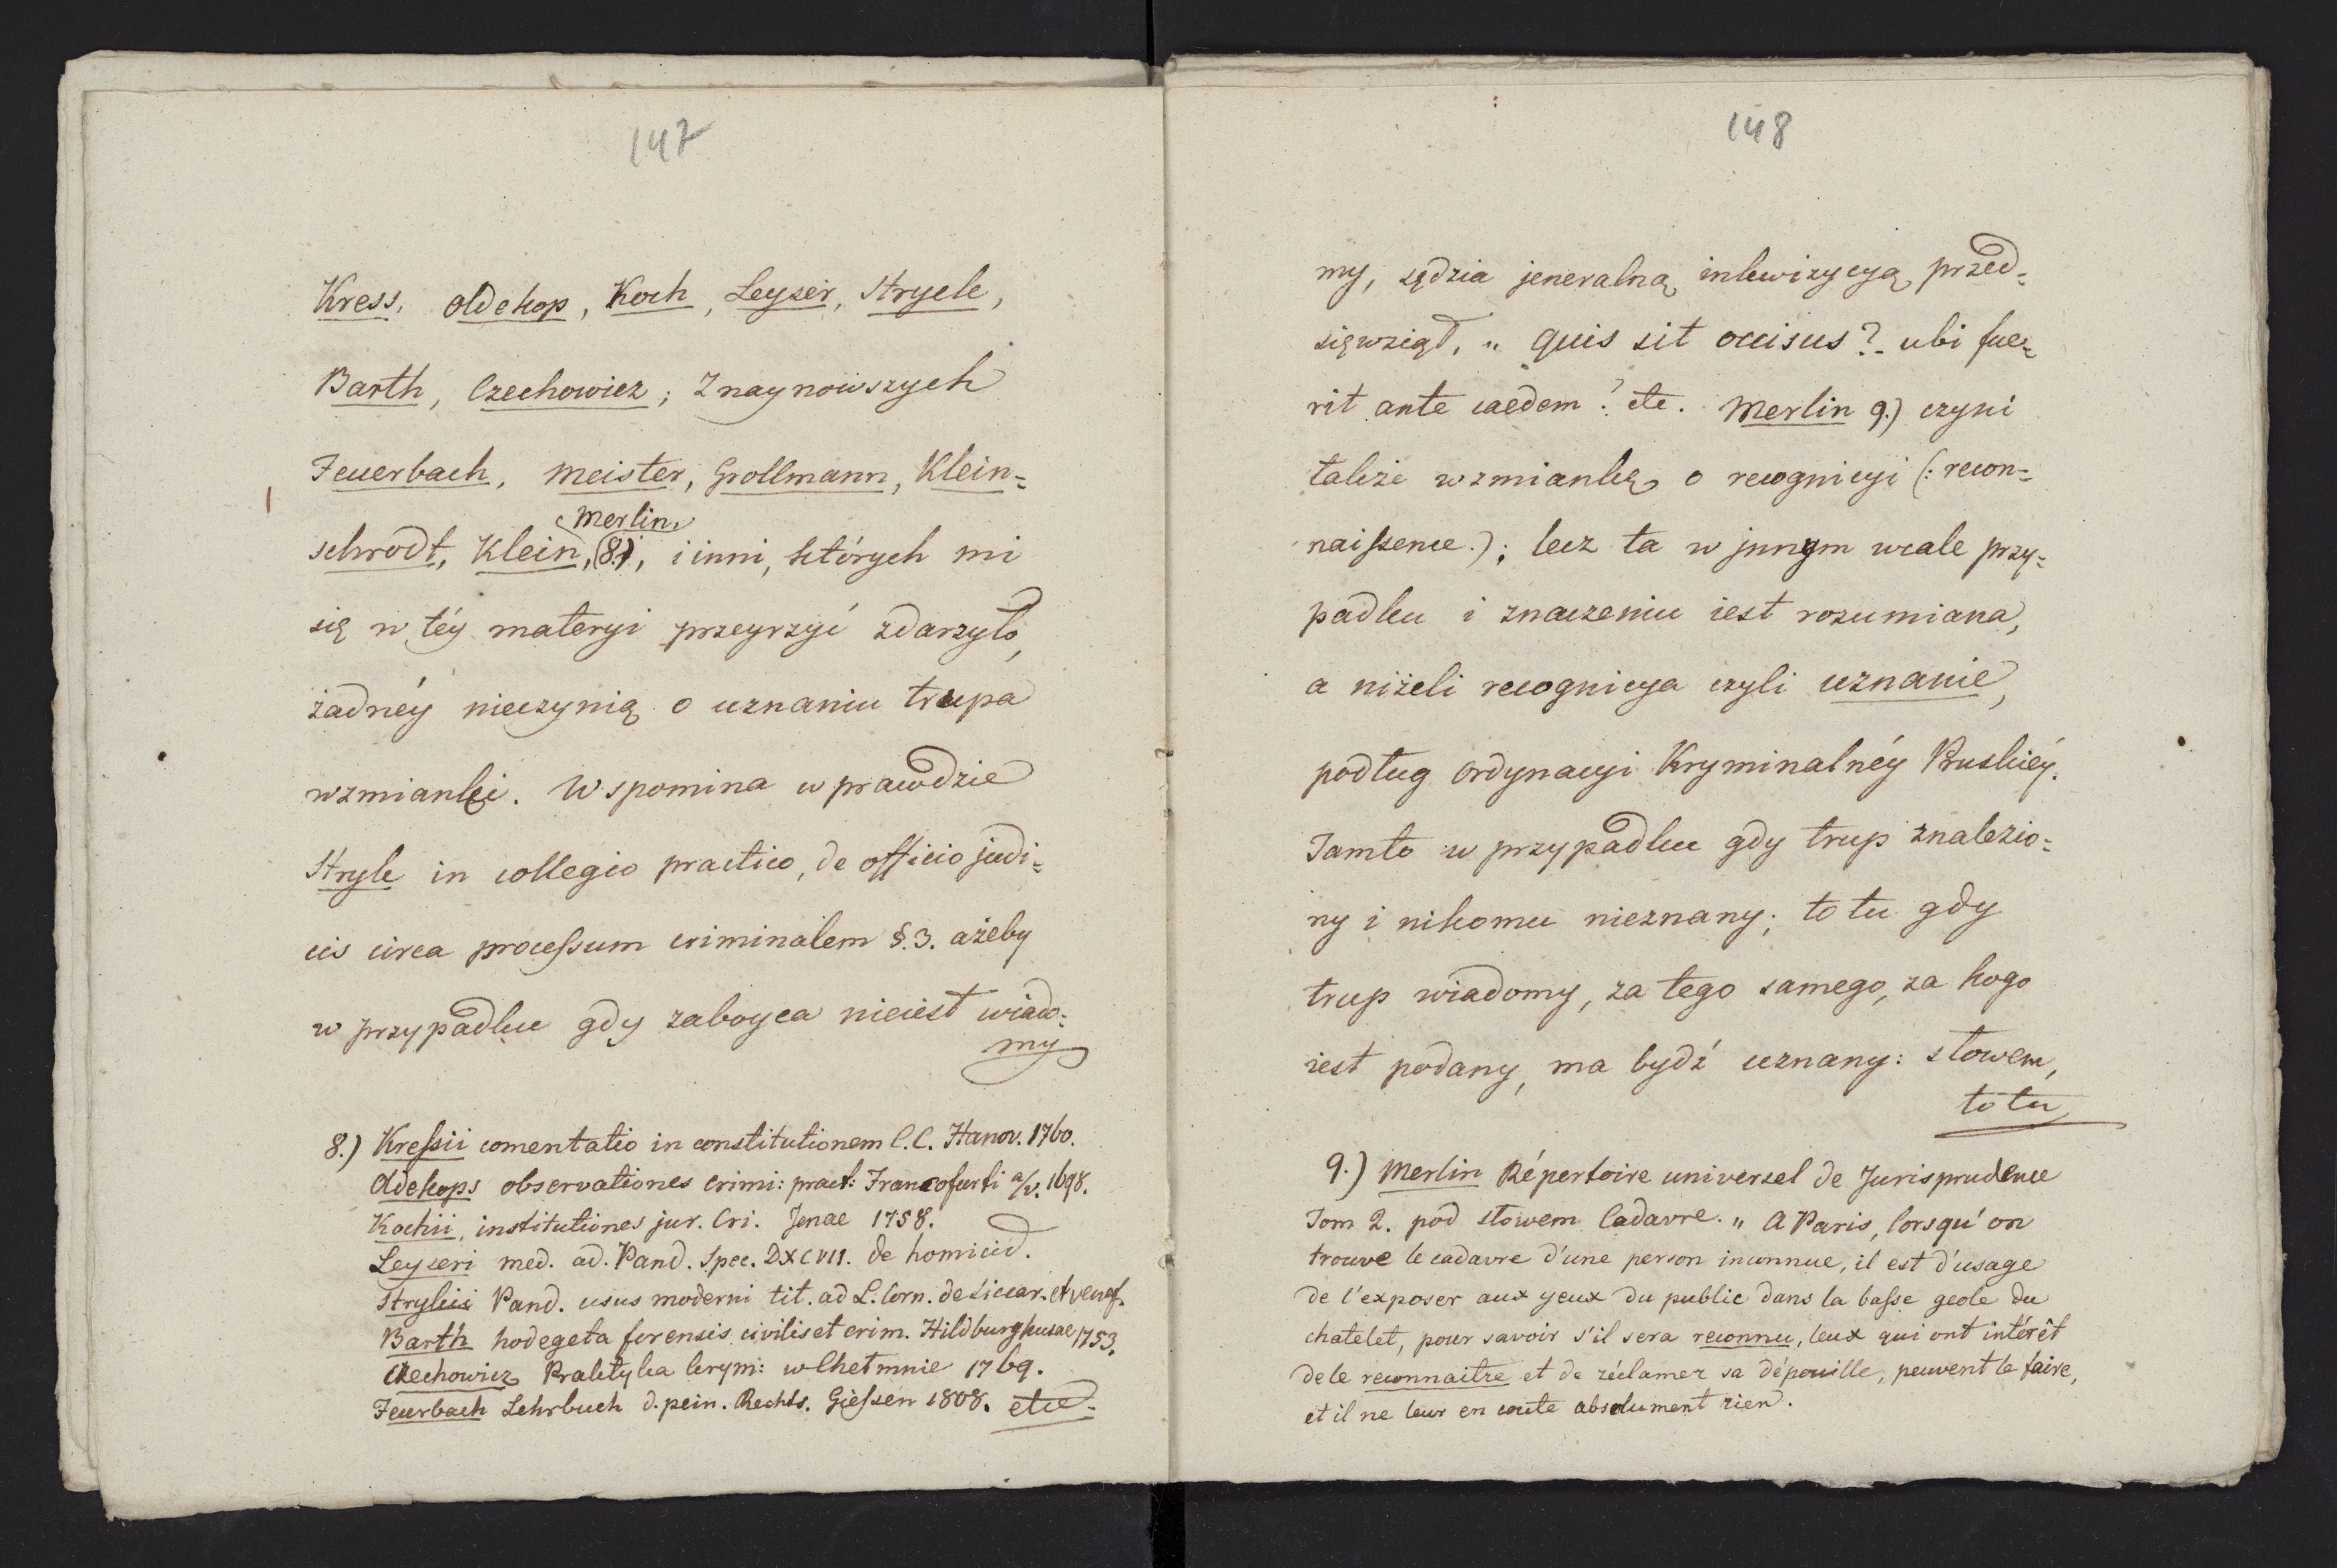 147
Kress, Oldekop, Koch, Leyser, Stryck,
Barth, Czechowicz; Z naynowszych
Feuerbach, Meister, Grollmann, Klein=
Merlin,
schrodt, Klein, (8.), i inni, których mi
się w téy materyi przeyrzyć zdarzyło,
żadnéy nieczynią o uznaniu trupa
wzmianki. Wspomina w prawdzie
Stryk in collegio practico, de officio judi=
cis circa processum criminalem §.3. ażeby
w przypadku gdy zaboyca nieiest wiado=
my
8.) Kressii comentatio in constitutionem C.C. Hanov. 1760.
Oldekops observationes crimi: pract: Francofurti a/v. 1698.
Kochii, institutiones jur. Cri. Jenae 1758.
Leyseri med. ad. Pand. Spec. DXCVII. de homicid.
Strykii Pand. usus moderni tit. ad L. Corn. de Siccar. et venef.
Barth hodegeta forensis civilis et crim. Hildburghusae 1753.
Czechowicz Praktyka krym: w Chełmnie 1769.
Feuerbach Lehrbuch d. pein. Rechts. Giessen 1808. etc=
148
my, sędzia jeneralną inkwizycyą przed=
sięwziął, „ quis sit occisus? ubi fue=
rit ante caedem? etc. Merlin 9.) czyni
także wzmiankę o recognicyi (: recon=
naissence.); lecz ta w jnnym wcale przy=
padku i znaczeniu iest rozumiana,
a niżeli recognicya czyli uznanie,
podług Ordynacyi Kryminalnéy Pruskiéy.
Tamto w przypadku gdy trup znalezio=
ny i nikomu nieznany; to tu gdy
trup wiadomy, za tego samego, za kogo
iest podany, ma bydź uznany: słowem,
to tu
9.) Merlin Répertoire universel de Jurisprudence
Tom 2. pod słowem Cadavre. „ A Paris, lorsqu'on
trouve le cadavre d'une person inconnue, il est d'usage
de l'exposer aux yeux du public dans la basse geole du
chatelet, pour savoir s'il sera reconnu, Ceux qui ont intérêt
de le reconnaitre et de réclamer sa dépouille, peuvent le faire,
et il ne leur en coute absolument rien.